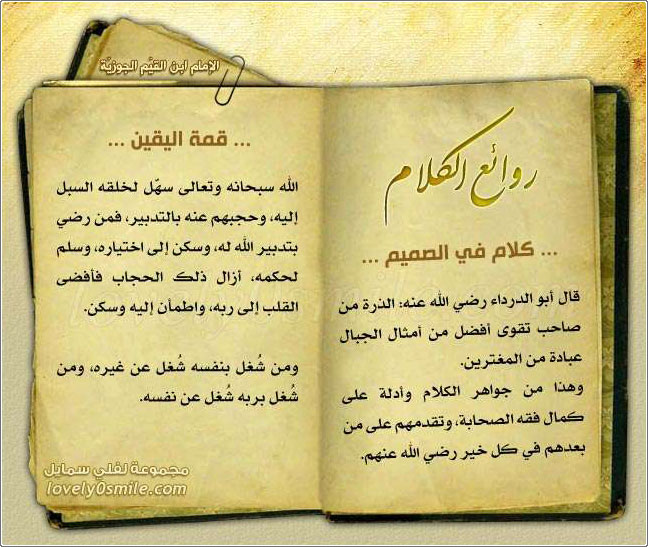 الإمام ابن القيّم الجوزيّة
روائع الكلام
... كلام في الصميم ...
قال أبو الدرداء رضي الله عنه: الذرة من
صاحب تقوى أفضل من أمثال الجبال
عبادة من المغترين.
وهذا من جواهر الكلام وأدلة على
كمال فقه الصحابة، وتقدمهم على من
بعدهم في كل خير رضي الله عنهم.
... قمة اليقين ...
الله سبحانه وتعالى سهّل لخلقه السبل
إليه، وحجبهم عنه بالتدبير، فمن رضي
بتدبير الله له، وسكن إلى اختياره، وسلم
لحكمه، أزال ذلك الحجاب فأفضى
القلب إلى ربه، واطمأن إليه وسكن.
ومن شُغل بنفسه شُغل عن غيره، ومن
شُغل بربه شُغل عن نفسه.
مجموعة لفلي سمايل
lovely0smile.com